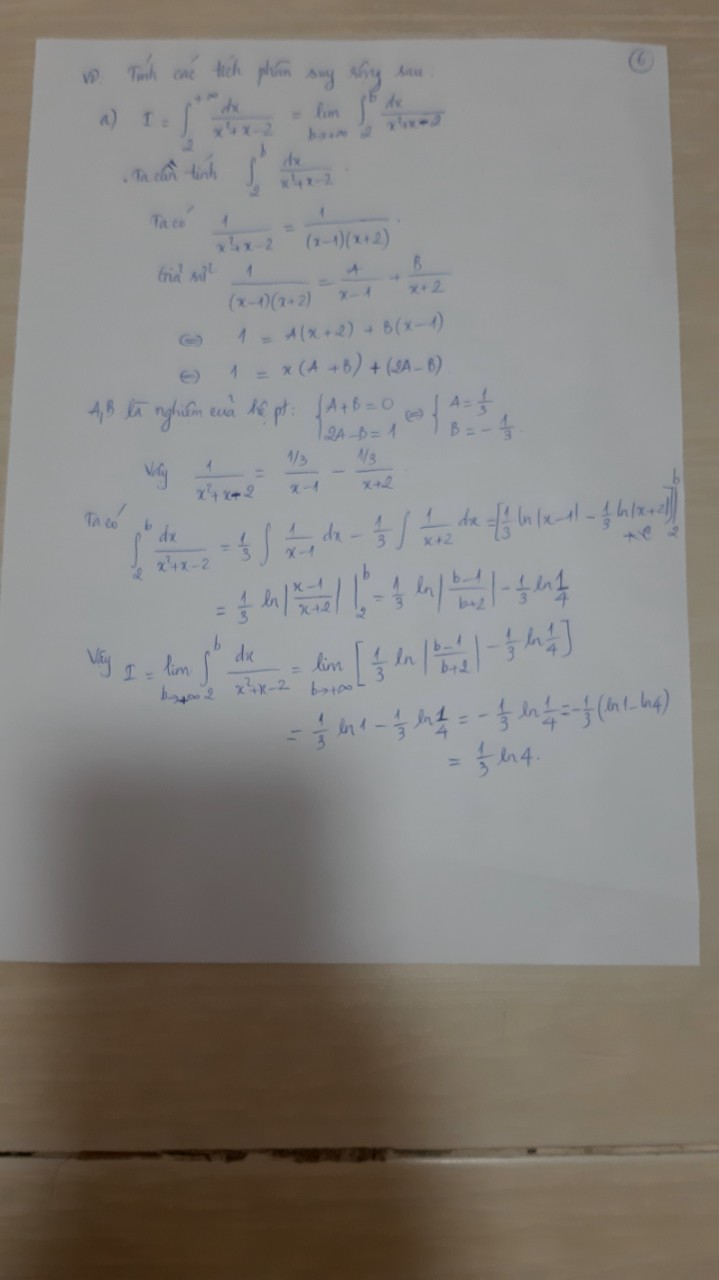 6
VD. Tính các tích phân suy rộng sau.
a) I = ∫₂^{+∞} dx/(x²+x-2) = lim_{b→+∞} ∫₂^b dx/(x²+x-2)
. Ta cần tính ∫₂^b dx/(x²+x-2).
Ta có 1/(x²+x-2) = 1/((x-1)(x+2)).
Giả sử 1/((x-1)(x+2)) = A/(x-1) + B/(x+2)
⇔ 1 = A(x+2) + B(x-1)
⇔ 1 = x(A+B) + (2A-B)
A,B là nghiệm của hệ pt: {A+B=0; 2A-B=1 ⇔ {A=1/3; B=-1/3.
Vậy 1/(x²+x-2) = (1/3)/(x-1) - (1/3)/(x+2)
Ta có ∫₂^b dx/(x²+x-2) = 1/3 ∫ 1/(x-1) dx - 1/3 ∫ 1/(x+2) dx = [1/3 ln|x-1| - 1/3 ln|x+2|]|₂^b
= 1/3 ln|(x-1)/(x+2)| |₂^b = 1/3 ln|(b-1)/(b+2)| - 1/3 ln 1/4
Vậy I = lim_{b→+∞} ∫₂^b dx/(x²+x-2) = lim_{b→+∞} [1/3 ln|(b-1)/(b+2)| - 1/3 ln 1/4]
= 1/3 ln1 - 1/3 ln 1/4 = -1/3 ln 1/4 = -1/3 (ln1 - ln4)
= 1/3 ln4.